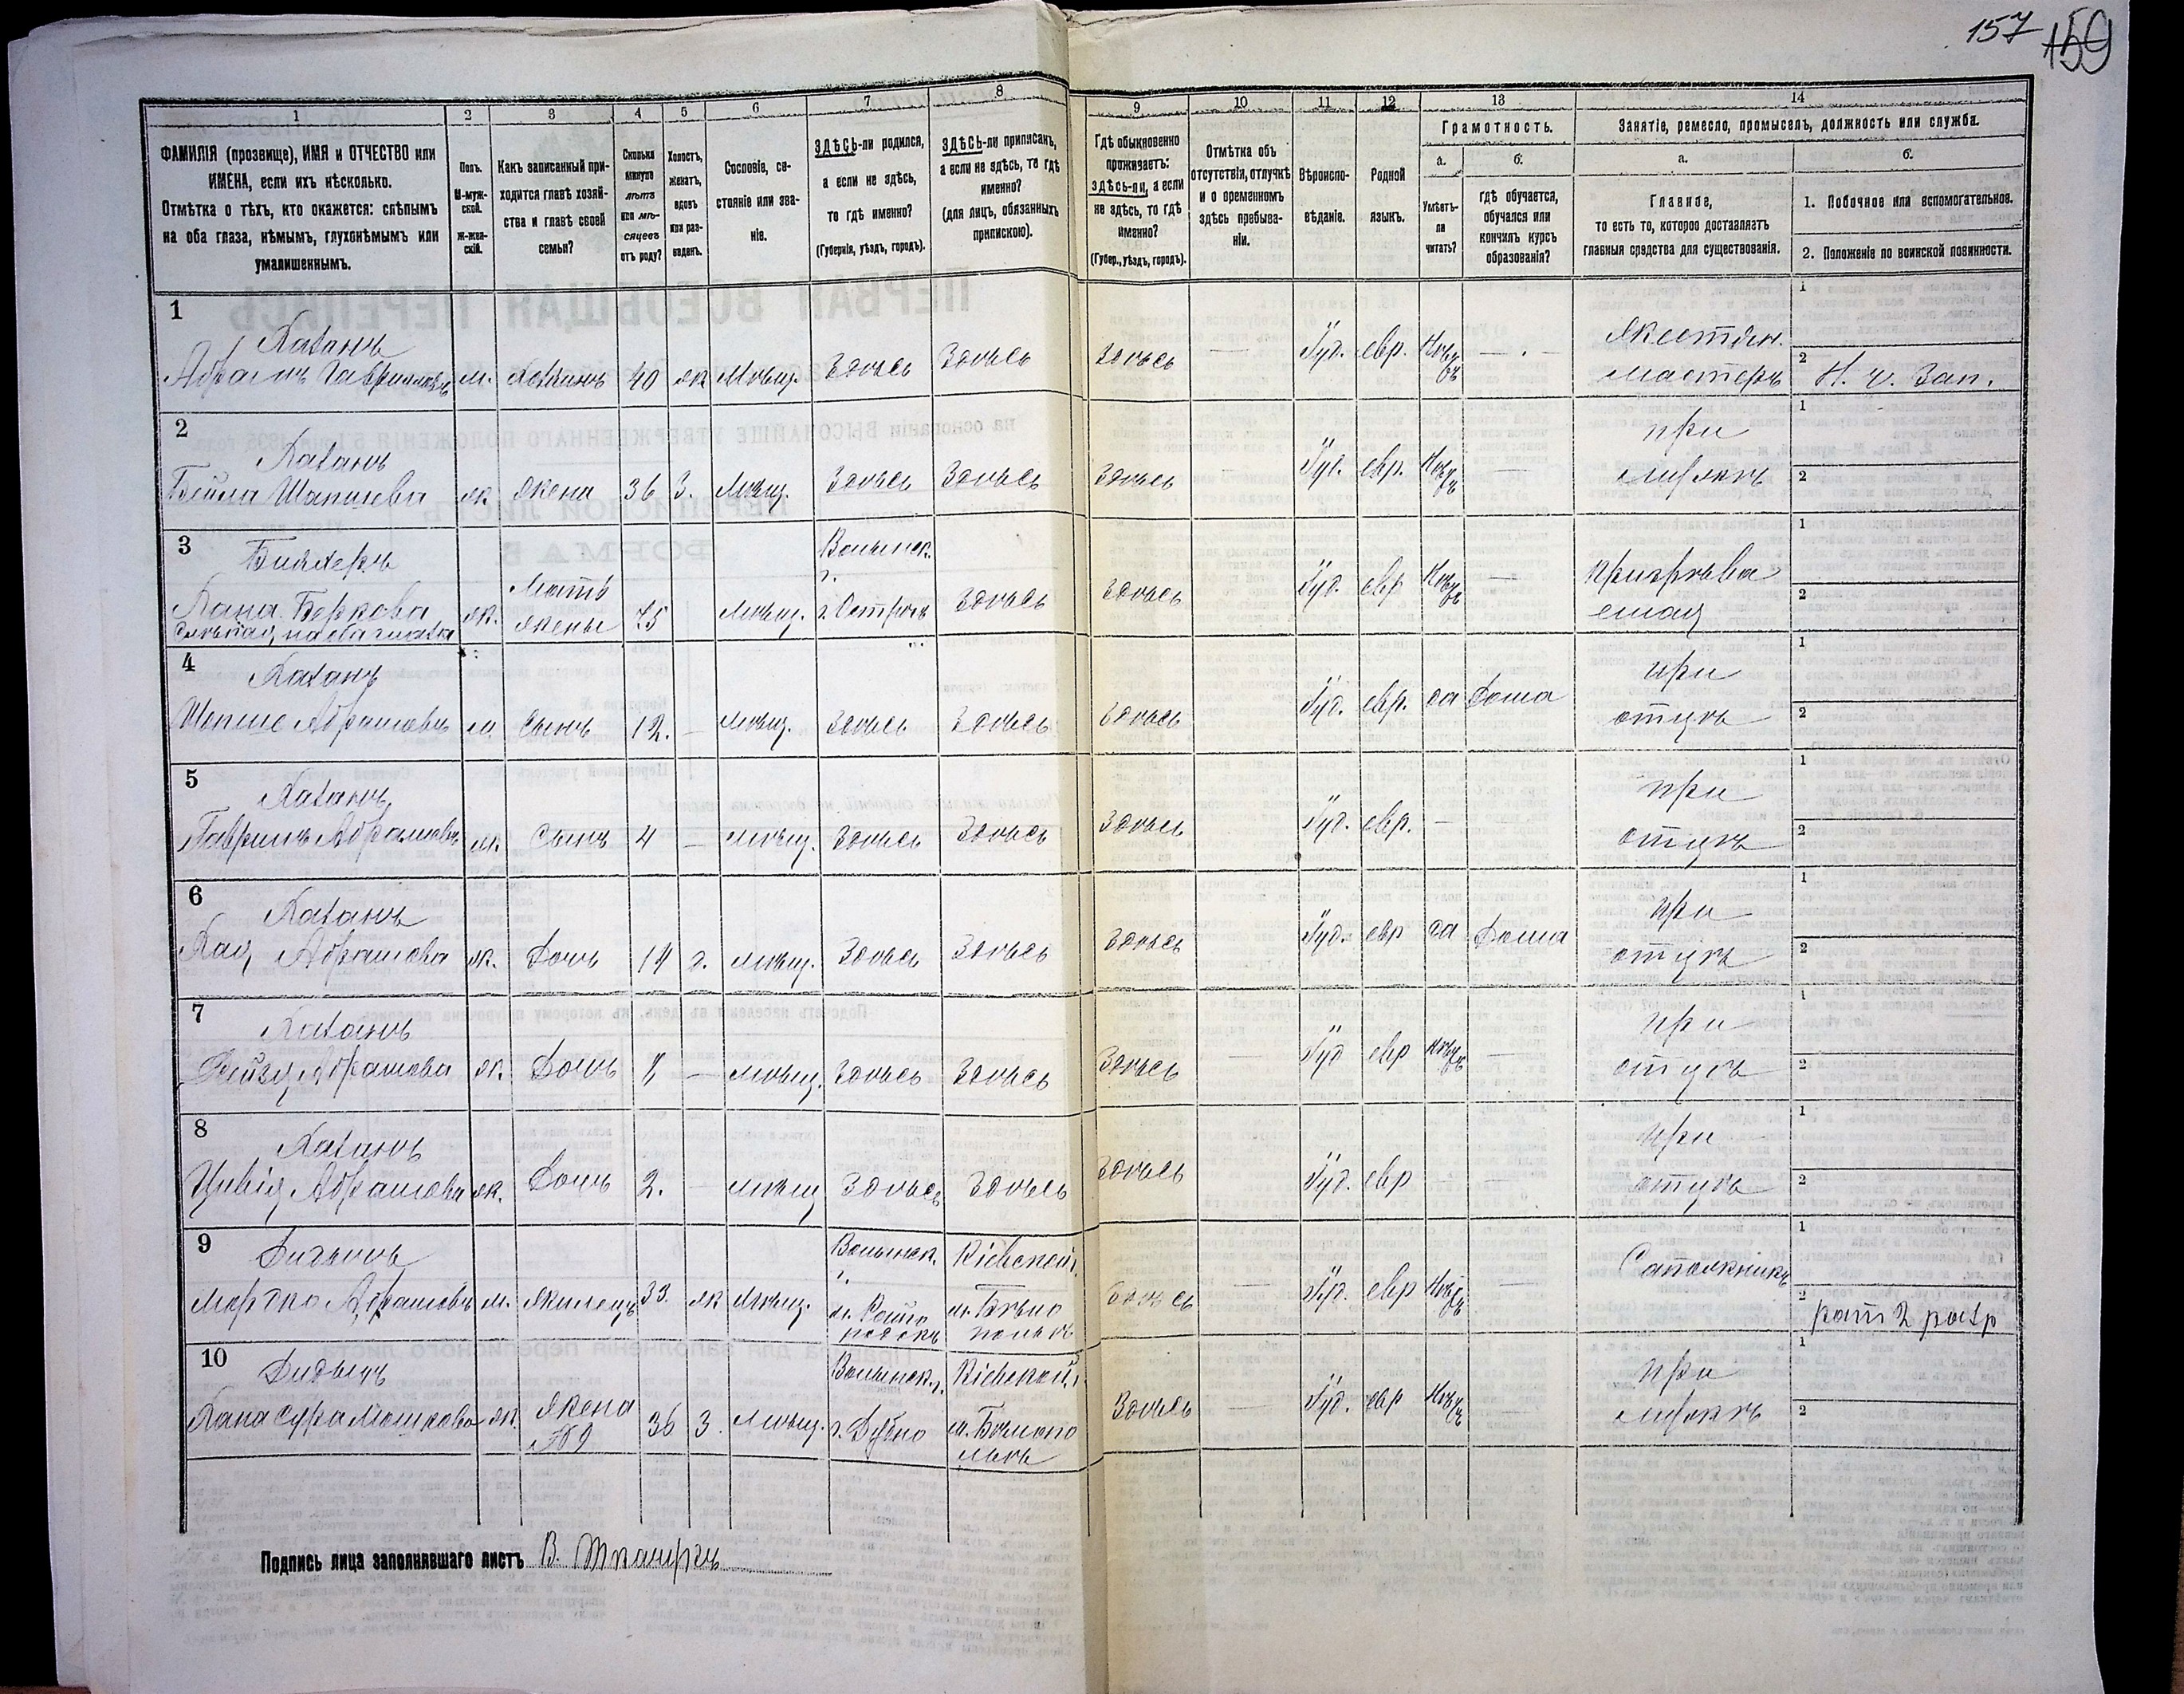 157 159
1 2 3 4 5 6 7 8 9 10 11 12 13 14
ФАМИЛІЯ (прозвище), ИМЯ и ОТЧЕСТВО или
ИМЕНА, если ихъ нѣсколько.
Отмѣтка о тѣхъ, кто окажется: слѣпымъ
на оба глаза, нѣмымъ, глухонѣмымъ или
умалишеннымъ.
Полъ.
М-муж-
ской.
ж-жен-
скій.
Какъ записанный при-
ходится главѣ хозяй-
ства и главѣ своей
семьи?
Сколько
минуло
лѣтъ
или мѣ-
сяцевъ
отъ роду?
Холостъ,
женатъ,
вдовъ
или раз-
веденъ.
Сословіе, со-
стояніе или зва-
ніе.
ЗДѢСЬ-ли родился,
а если не здѣсь,
то гдѣ именно?
(Губернія, уѣздъ, городъ).
ЗДѢСЬ-ли приписанъ,
а если не здѣсь, то гдѣ
именно?
(для лицъ, обязанныхъ
припискою).
Гдѣ обыкновенно
проживаетъ:
здѣсь-ли, а если
не здѣсь, то гдѣ
именно?
(Губер., уѣздъ, городъ).
Отмѣтка объ
отсутствіи, отлучкѣ
и о временномъ
здѣсь пребыва-
ніи.
Вѣроиспо-
вѣданіе.
Родной
языкъ.
Грамотность.
а.
Умѣетъ-
ли
читать?
б.
гдѣ обучается,
обучался или
кончилъ курсъ
образованія?
Занятіе, ремесло, промыселъ, должность или служба.
а.
Главное,
то есть то, которое доставляетъ
главныя средства для существованія.
б.
1. Побочное или вспомогательное.
2. Положеніе по воинской повинности.
1
Хазанъ
Абрамъ Гавриловъ м. Хозяинъ 40 ж Мѣщ. Здѣсь Здѣсь Здѣсь — Іуд. евр. Нѣтъ — Жестян.
мастеръ Н. ч. Зап.
2
Хазанъ
Бейла Шапшева ж. жена 36 З. Мѣщ. Здѣсь Здѣсь Здѣсь Іуд. евр. Нѣтъ — при
мужѣ
3
Хана Беркова ж. Мать
жены 75 Мѣщ. Волынск.
г.
г. Острогъ Здѣсь Здѣсь Іуд. евр Нѣтъ — призрѣва
емая
слѣпая на оба глаза
4
Хазанъ
Шепше Абрамовъ м. Сынъ 12. — мѣщ. Здѣсь Здѣсь Здѣсь Іуд. евр. да Дома при
отцѣ
5
Хазанъ
Гаврилъ Абрамовъ м. Сынъ 4 — мѣщ. Здѣсь Здѣсь Здѣсь Іуд. евр. — — при
отцѣ
6
Хазанъ
Хая Абрамова ж. Дочь 14 д. мѣщ. Здѣсь Здѣсь Здѣсь Іуд. евр да Дома при
отцѣ
7
Хазанъ
Абрамова ж. Дочь 8 — мѣщ. Здѣсь Здѣсь Здѣсь Іуд евр Нѣтъ — при
отцѣ
8
Хазанъ
Цивія Абрамова ж. Дочь 2. — мѣщ Здѣсь Здѣсь Здѣсь Іуд. евр — — при
отцѣ
9
Мортко Абрамовъ м. жилецъ 33. ж Мѣщ. Волынск.
г. Кіевской г.
Здѣсь — Іуд. евр Нѣтъ — Сапожникъ
рат 2 разр
10
Хана Сура Мошкова ж. Жена
№9 36 З. Мѣщ. Волынск. г.
г. Дубно Кіевской г.
Здѣсь — Іуд. евр Нѣтъ при
мужѣ
Подпись лица заполнявшаго листъ